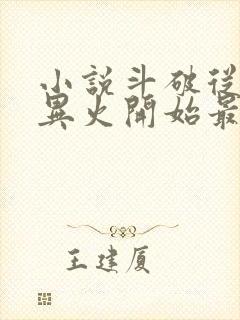 小說斗破從
異火開始最
王建厦